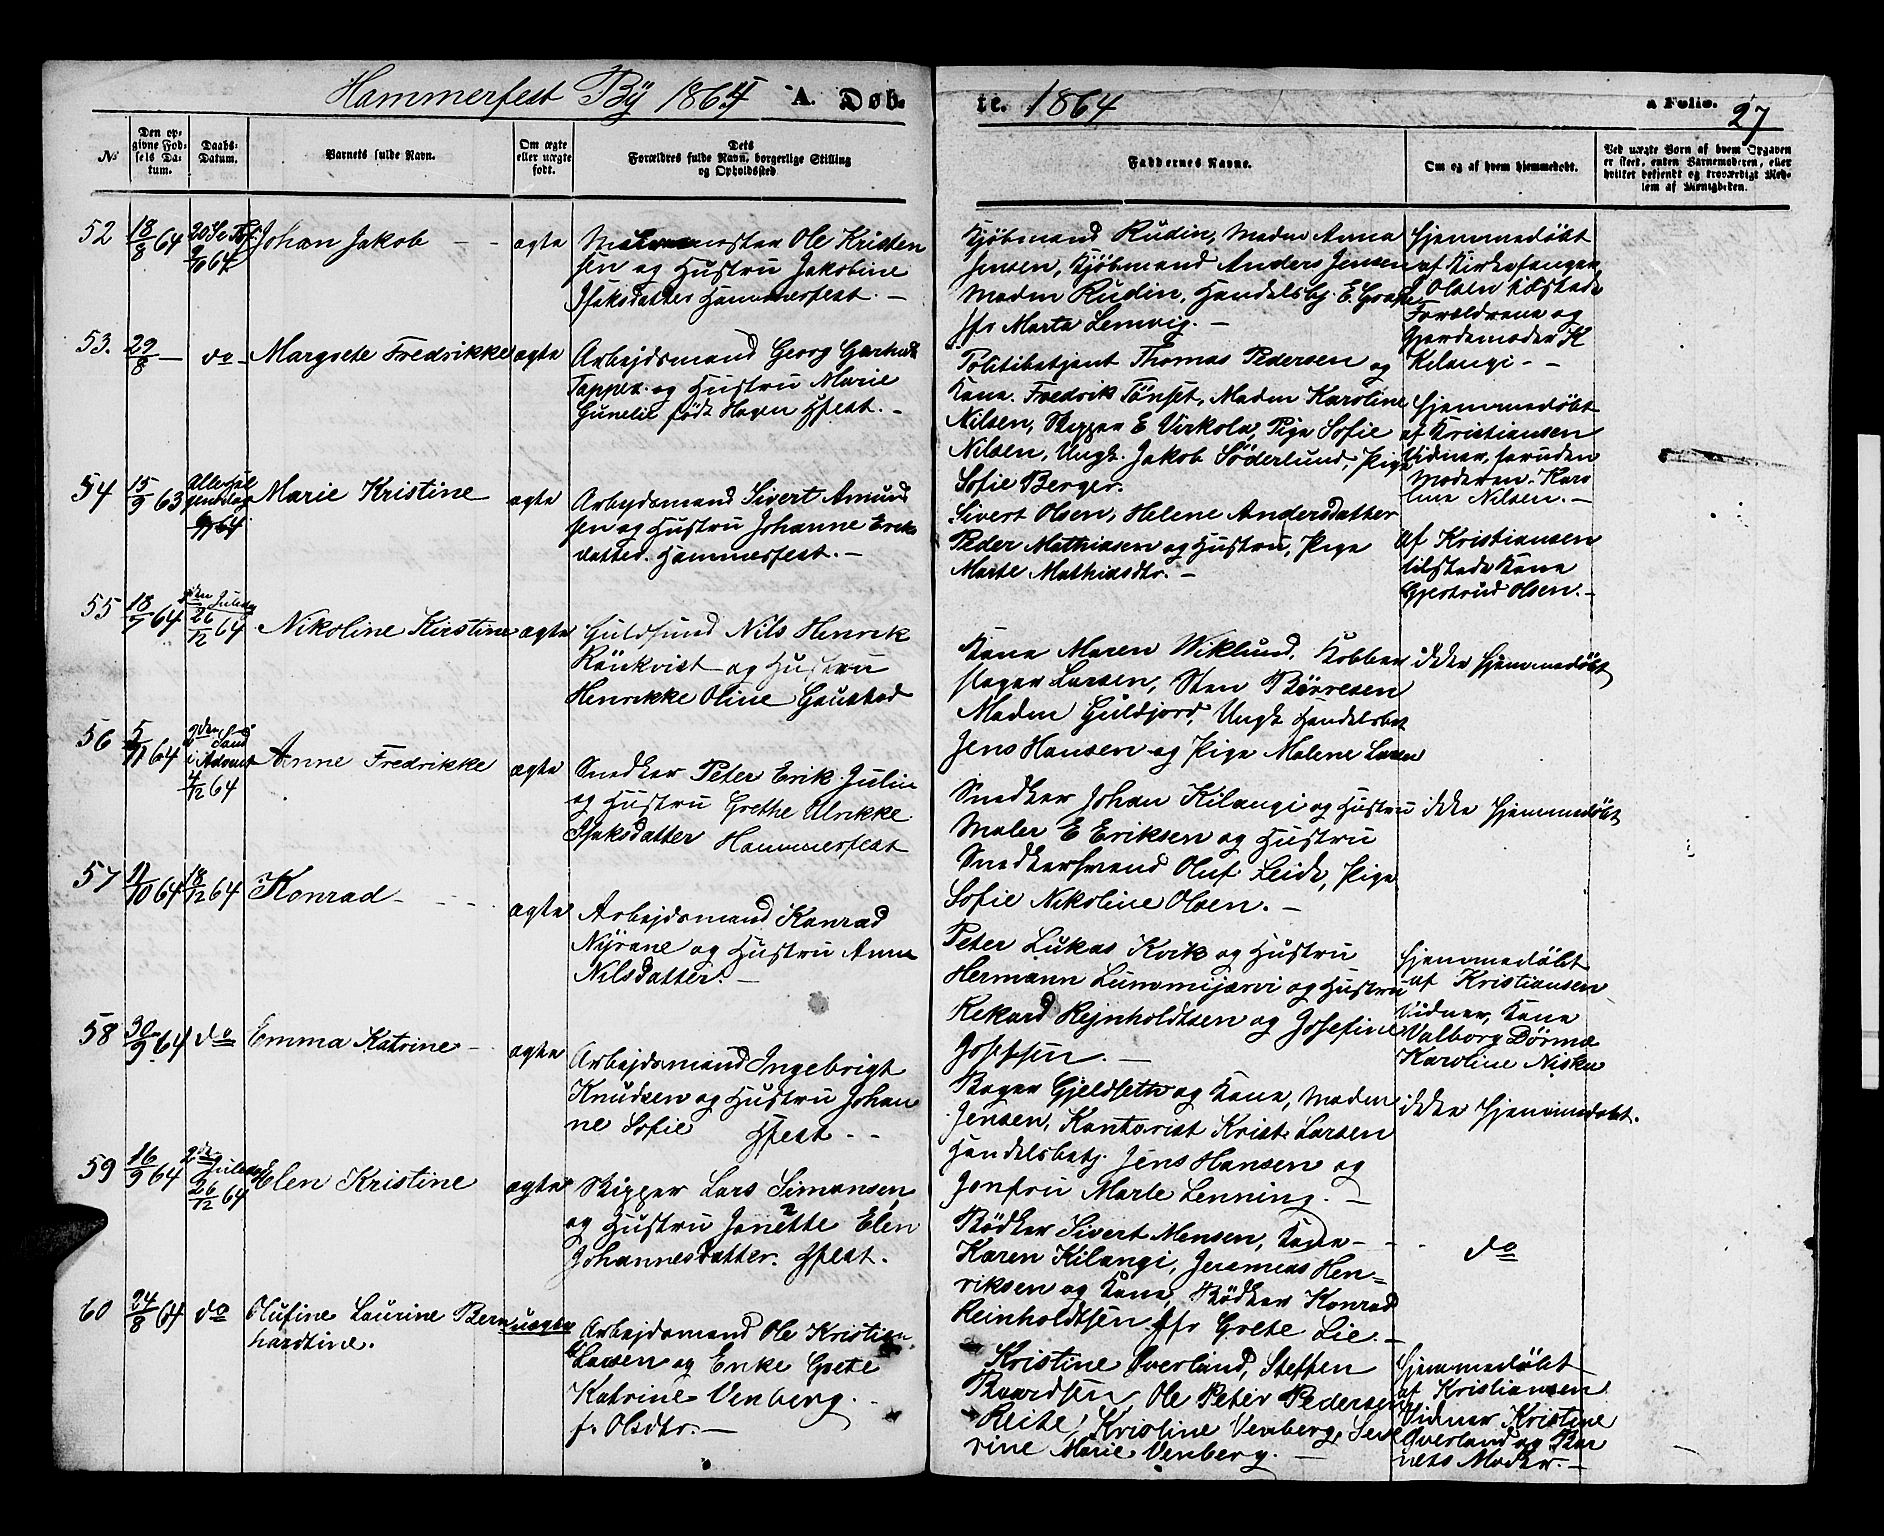 Hammerfest By 1864 A. Døb-
te. 1864
a Folio. 27
No
Den opgivne Fødsels Datum.
Daabs-Datum.
Barnets fulde Navn.
Om ægte eller uægte født.
Dets Forældres fulde Navn, borgerlige Stilling og Opholdssted.
Faddernes Navne.
Om og af hvem hjemmedøbt.
Ved uægte Børn af hvem Opgaven er skeet, enten Barnemoderen, eller hvilket bekjendt og troværdigt Medlem af Menigheden.
52 18/8 64
Johan Jakob
ægte
Ole Kristen
sen og Hustru Jakobine
Isaksdatter Hammerfest. -
Kjøbmand Rudin, Madm Anna
Jensen, Kjøbmand Anders Jensen
Madm Rudin, Handelsbj. E.
jfr Marta Lemvig. -
Hjemmedøbt
af Kirkesanger
Olsen tilstede
Forældrene og
Gjordemoder K
Kilangi - -
53. 29/8 -
do -
Margrete Fredrikke
ægte
Arbejdsmand Georg
og Hustru Marie
Gunelie født Hagen Hfest. -
Politibetjent Thomas Pedersen og
Kone. Fredrik Tönset, Madm Karoline
Nilsen, Skipper E Virkola, Pige Sofie
Nilsen, Ungk. Jakob Söderlund, Pige
Sofie Berger.
Hjemmedøbt
af Kristiansen
Vidner, foruden
Moderen. Karo
line Nilsen. -
54 15/9 63
Marie Kristine
ægte
Arbejdsmand Sivert Amund
sen og Hustru Johanne Erik
datter. Hammerfest. -
Sivert Olsen, Helene Andersdatter
Peder Mathiasen og Hustru, Pige
Marte Mathiasdtr. -
af Kristiansen
tilstede Kone
Gjertrud Olsen. -
55 18/7 64
2den Juledag
26/12 64
Nikoline Kirstine
ægte
Guldsmed Nils Henrik
Rönkvist og Hustru
Henrikke Oline Gaustad
Kone Maren Wiklund, Kobber
slager Larsen, Sten Børresen
Madm Guldjord, Ungk Handelsbet
Jens Hansen og Pige Malene Larsen
ikke Hjemmedøbt
56 5/11 64
2den Sønd
i Advent
4/12 64
Anne Fredrikke
ægte
Snedker Peter Erik Julin
og Hustru Grethe Ulrikke
Isaksdatter Hammerfest
Snedker Johan Kilangi og Hustru
Maler E Eriksen og Hustru
Snedkersvend Oluf Leide, Pige
Sofie Nikoline Olsen. -
ikke Hjemmedøbt
57 11/10 64
18/12 64
Konrad
ægte
Arbejdsmand Konrad
Nyrane og Hustru Anna
Nilsdatter. -
Peter Lukas Kvik og Hustru
Hermann Lummijarvi og Hustru
Rekard Rejnholdtsen og Josefine
Josefsen. -
Hjemmedøbt
af Kristiansen
Vidner, Kone
Valborg
Karoline
58 30/9 64
do
Emma Katrine -
ægte
Arbejdsmand Ingebrigt
Knudsen og Hustru Johan
ne Sofie Hfest - -
Bager Gjeldseth og Kone, Madm
Jensen, Kontorist Krist. Larsen
Handelsbetj. Jens Hansen og
Jomfru Marte Lenning. -
ikke Hjemmedøbt.
59 16/9 64
2den Juledag
26/12 64
Elen Kristine
ægte
Skipper Lars Simonsen
og Hustru Janette Elen
Johannesdatter. Hfest.
Bödker Sivert Mensen, Kone -
Karen Kilangi, Jeremias Hen=
riksen og Kone, Bödker Konrad
Reinholdtsen jfr Grete Lie. -
do
60 24/8 64
do
Olufine Laurine Bern
hardtine.
uægte
Arbejdsmand Ole Kristian
Larsen og Enke Grete
Katrine Venberg.
f. Olsdtr. -
Kristine Overland, Steffen
Baardsen, Ole Peter Pedersen
Reite, Kristine Venberg, Seve
rine Marie Venberg. -
Hjemmedøbt
af Kristiansen
Vidner Kristine
Overland og Bar
nets Moder. -